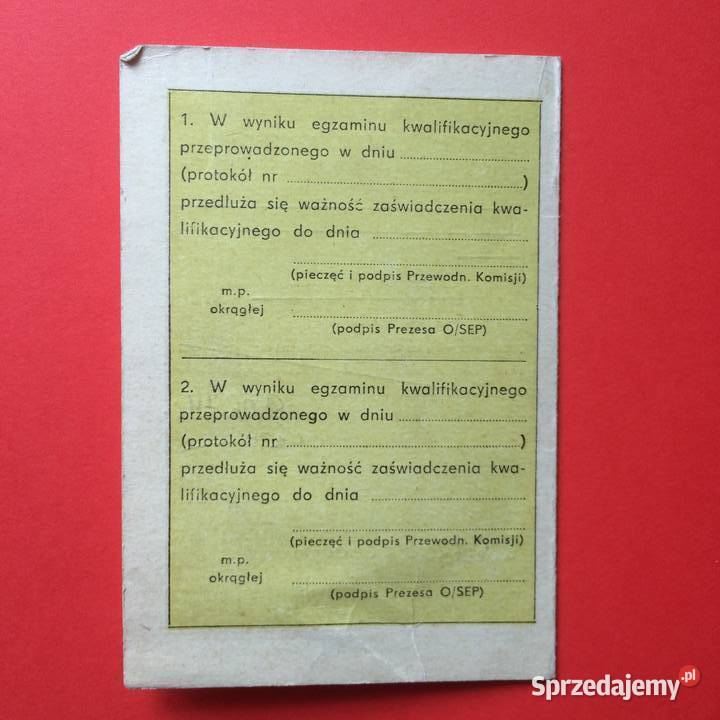 1. W wyniku egzaminu kwalifikacyjnego
przeprowadzonego w dniu ....................
(protokół nr ....................)
przedłuża się ważność zaświadczenia kwa-
lifikacyjnego do dnia ....................
....................
(pieczęć i podpis Przewodn. Komisji)
m.p.
okrągłej ....................
(podpis Prezesa O/SEP)
2. W wyniku egzaminu kwalifikacyjnego
przeprowadzonego w dniu ....................
(protokół nr ....................)
przedłuża się ważność zaświadczenia kwa-
lifikacyjnego do dnia ....................
....................
(pieczęć i podpis Przewodn. Komisji)
m.p.
okrągłej ....................
(podpis Prezesa O/SEP)
Sprzedajemy.pl